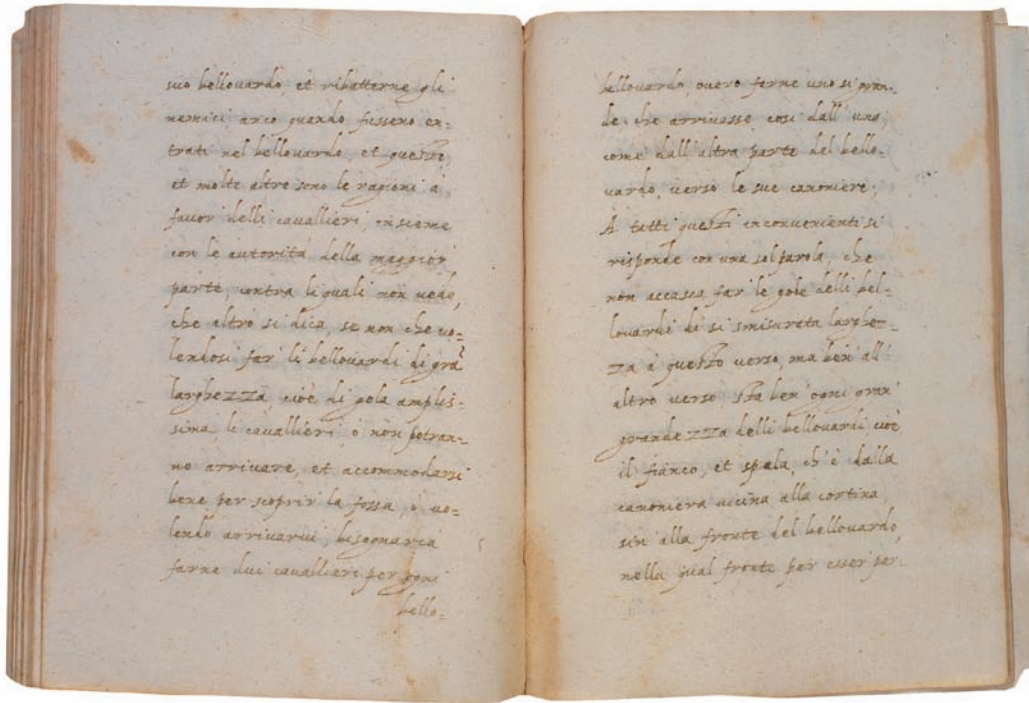 suo bellouardo, et ribatterne gli
nemici anco quando fusseno en=
trati nel bellouardo, et queste,
et molte altre sono le ragioni a
fauor delli cauallieri, insieme
con le autorità della maggior
parte, contra li quali non uedo,
che altro si dica, se non che uo=
lendosi far li bellouardi di gra
larghezza, cioè di gola amplis=
sima, le cauallieri, o non potran=
no arriuare, et accommodarsi
bene per scoprir la fossa, o uo=
lendo arriuarui, bisognaria
farne dui cauallieri per ogni
bello=
bellouardo, ouero farne uno si gran=
de che arriuasse cosi dall' una,
come dall' altra parte del bello=
uardo, uerso le sue canoniere;
A tutti questi inconuenienti si
risponde con una sol parola, che
non accasca far le gole delli bel=
louardi di si smisurata larghez=
za à questo uerso, ma ben' all'
altro uerso sta ben' ogni gran
grandezza delli bellouardi, cioè
il fianco, et spala, ch' è dalla
canoniera uicina alla cortina,
sin' alla fronte del bellouardo,
nella qual fronte per esser per=